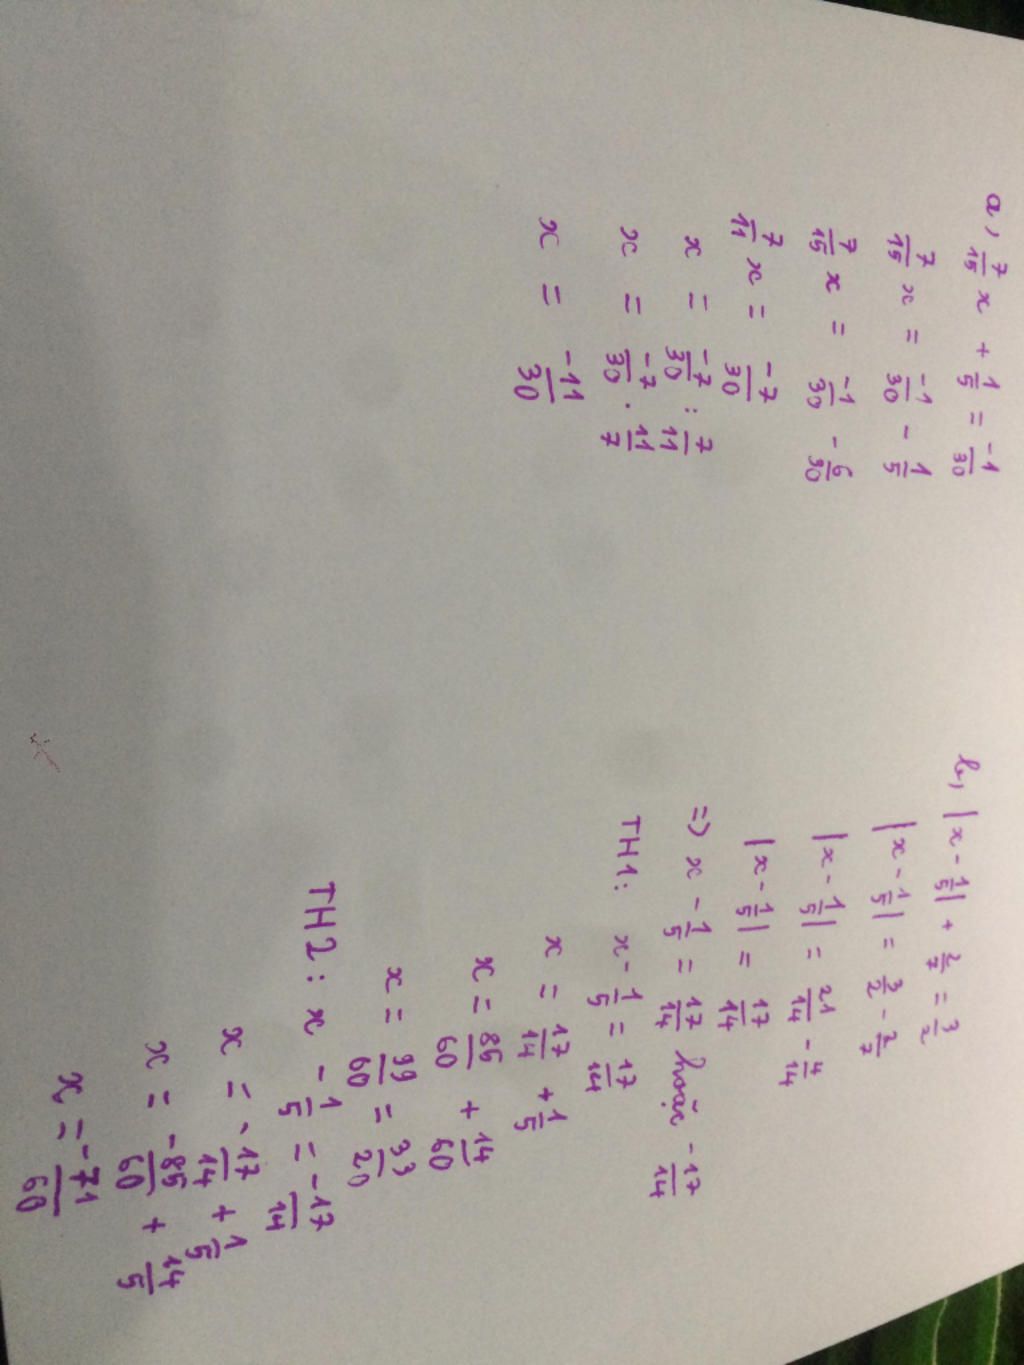 a, 7/15 x + 1/5 = -1/30
7/15 x = -1/30 - 1/5
7/15 x = -1/30 - 6/30
7/11 x = -7/30
x = -7/30 : 7/11
x = -7/30 . 11/7
x = -11/30
b, |x - 1/5| + 2/7 = 3/2
|x - 1/5| = 3/2 - 2/7
|x - 1/5| = 21/14 - 4/14
|x - 1/5| = 17/14
=> x - 1/5 = 17/14 hoặc -17/14
TH1: x - 1/5 = 17/14
x = 17/14 + 1/5
x = 85/60 + 14/60
x = 99/60 = 33/20
TH2: x - 1/5 = -17/14
x = -17/14 + 1/5
x = -85/60 + 14/5
x = -71/60